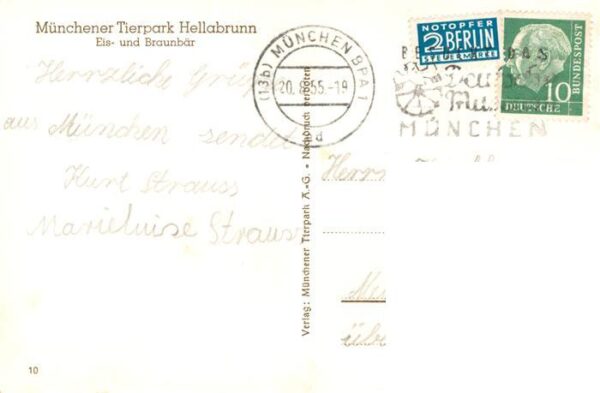 Münchener Tierpark Hellabrunn
Eis- und Braunbär
Herzliche Grüße
aus München sendet
Kurt Strauss
Marieluise Strauss
10
Verlag: Münchener Tierpark A.-G. - Nachdruck verboten
(13b) MÜNCHEN BPA 1
20. 55.-19
d
NOTOPFER
2 BERLIN
STEUERMARKE
DEUTSCHE
BUNDESPOST
10
DAS
MÜNCHEN
Herrn